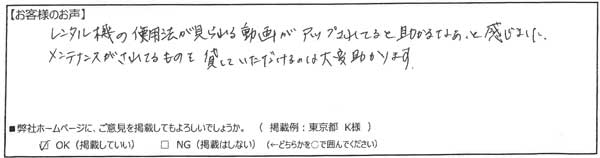 【お客様のお声】
レンタル機の使用法が見られる動画がアップされてると助かるなあ、と感じました。
メンテナンスがされてるものを貸していただけるのは大変助かります。
■弊社ホームページに、ご意見を掲載してもよろしいでしょうか。（掲載例：東京都 K様 ）
☑ OK（掲載していい） □ NG（掲載はしない）（←どちらかを○で囲んでください）